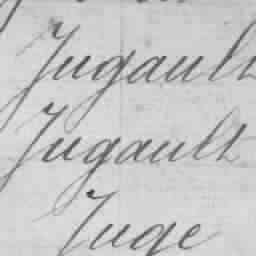 Jugault
Jugault
Juge